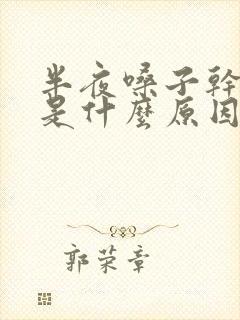 半夜嗓子幹
是什麼原因
郭荣章